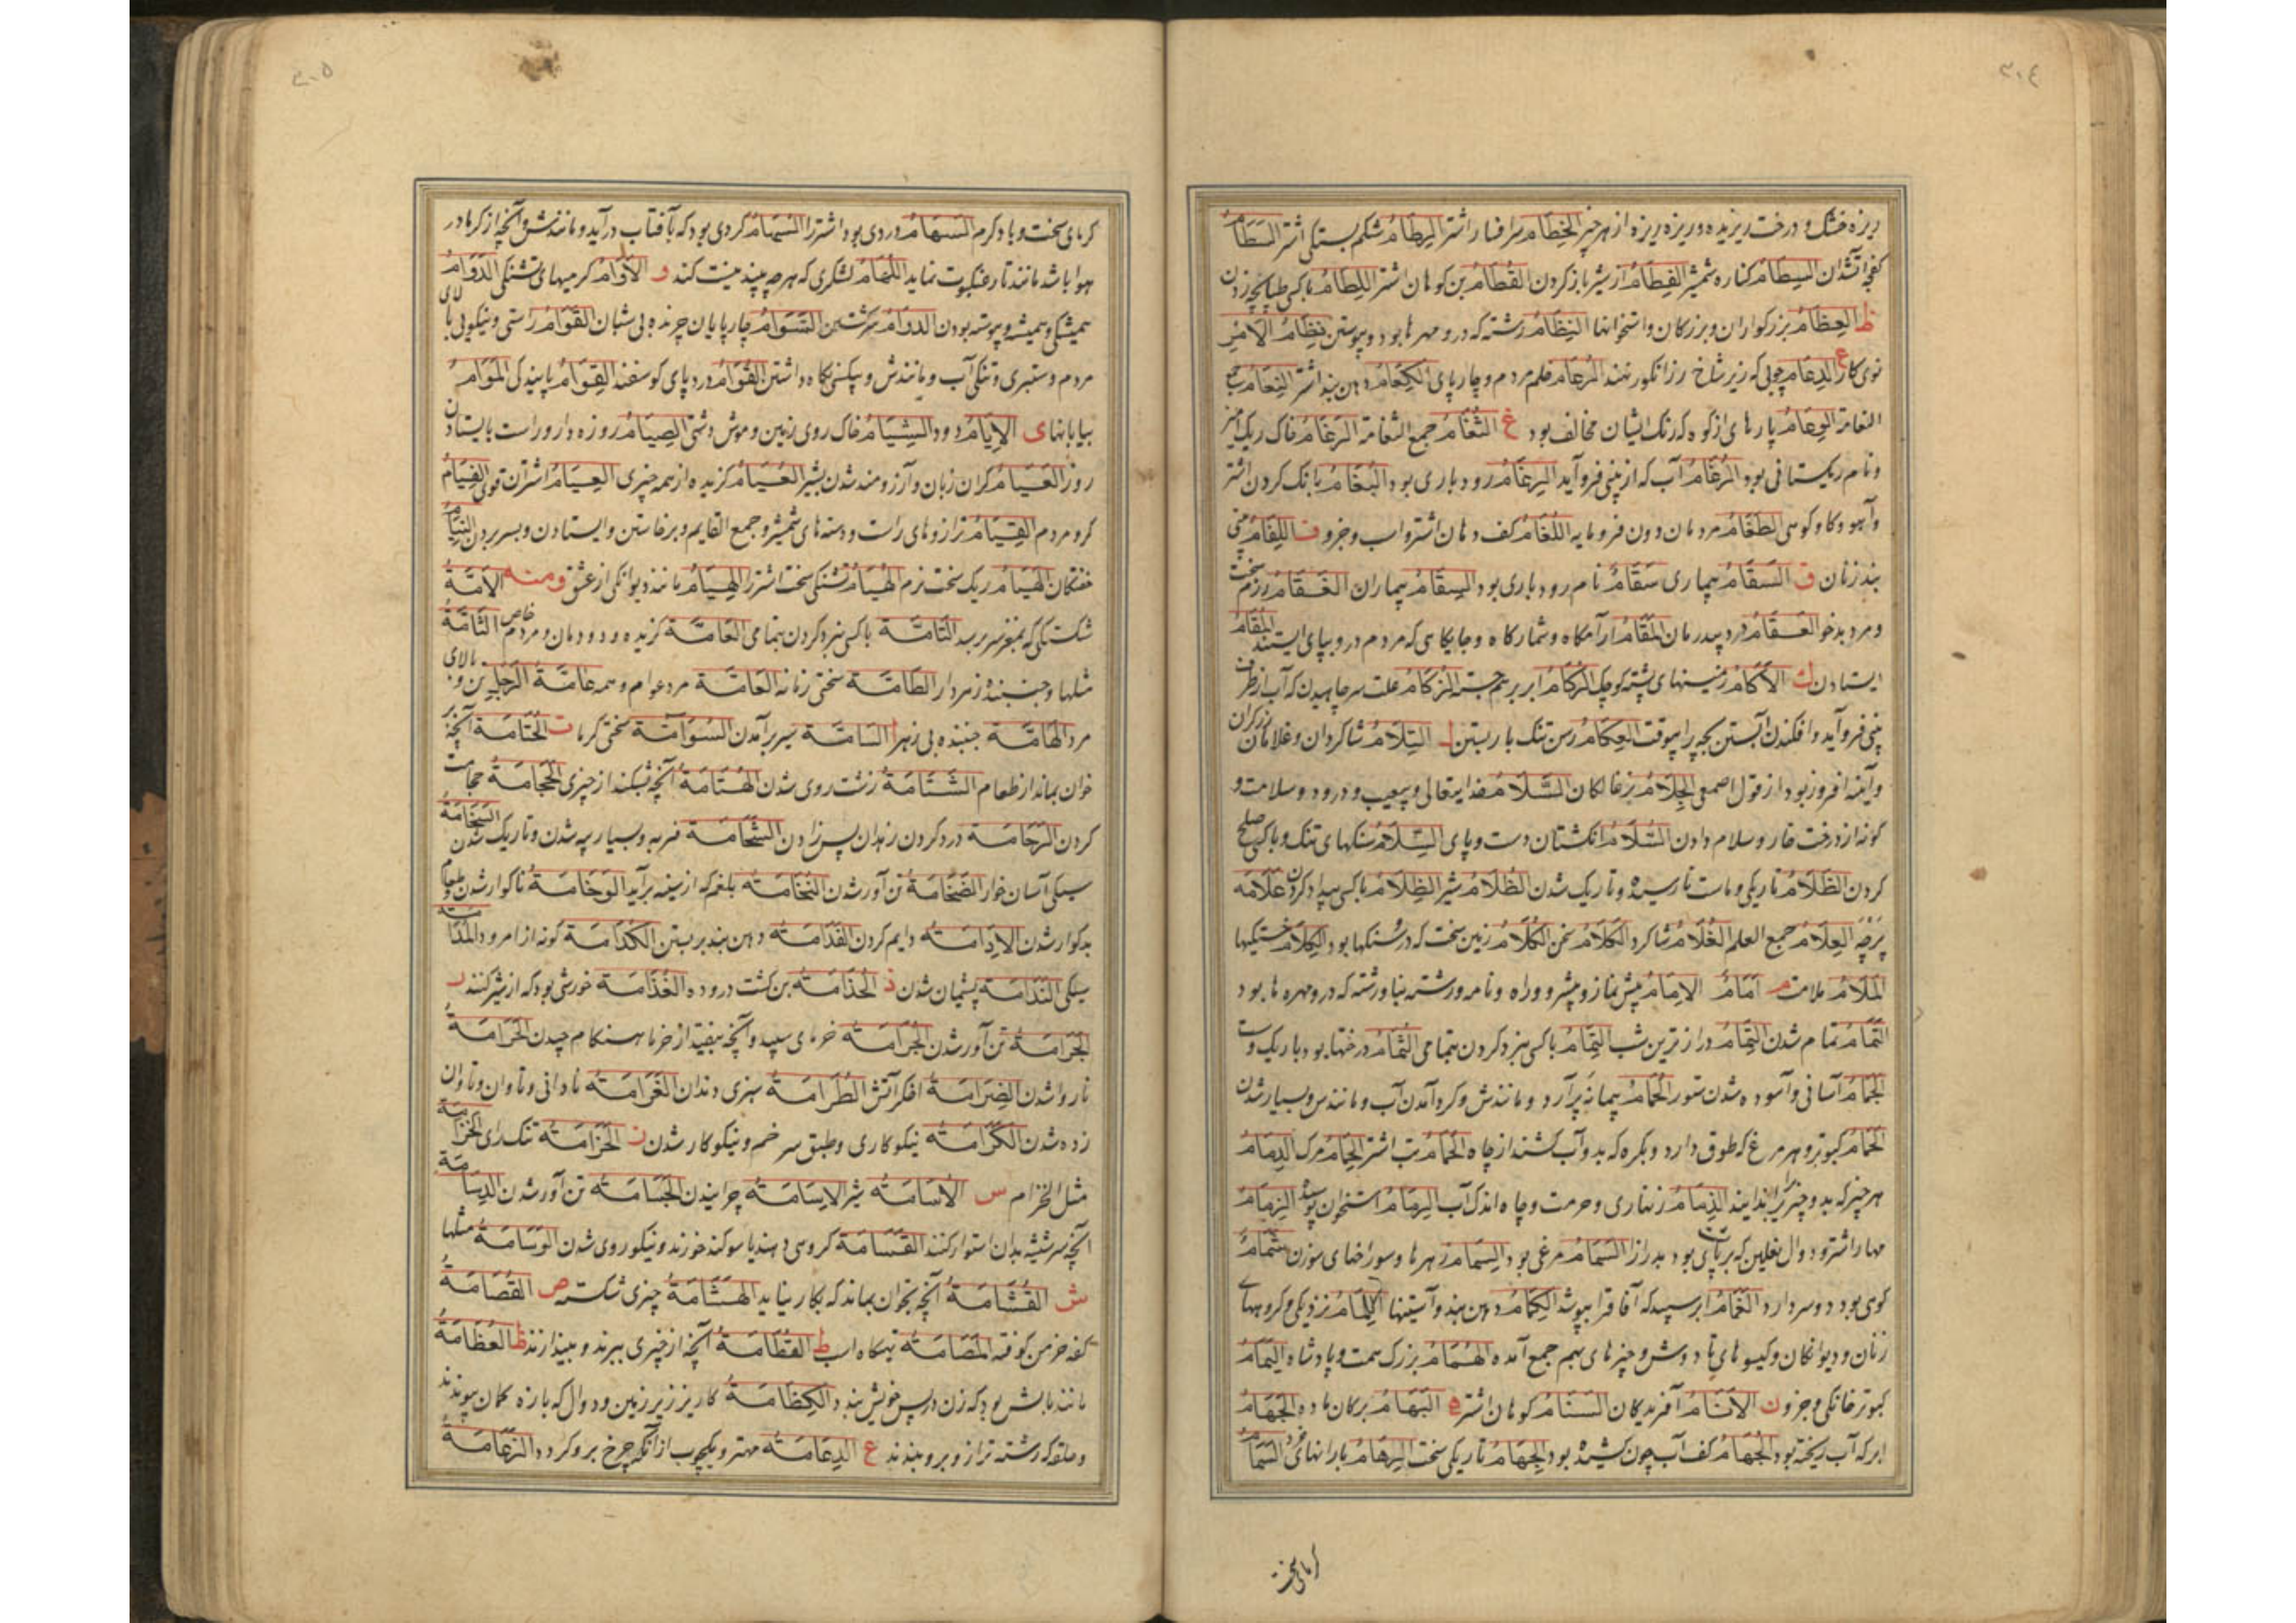 ٣٠٤
ریزه خشک و درخت ریزیده و ریزه ریزه از هر چیز الخِطَامُ سرافسار اشتر الرِطَامُ شکم بستگی اشتر السَطَامُ
آتشدان السِطَامُ کناره شمشیر الفِطَامُ از شیر باز کردن القُطَامُ بن کوهان اشتر اللِطَامُ با کسی طپانچه زدن
ظ العِظَامُ بزرگواران و بزرگان و استخوانها النِظَامُ رشته که درو مهرها بود و پیوستن نِظَامُ الاَمْرِ
ع الدِعَامُ چوبی که زیر شاخ رز انگور نهند الرُعَامُ خلم مردم و چارپای الکِعَامُ دهن بند اشتر النَعَامُ
النعامة الوِعَامُ پارهای از کوه که رنگ ایشان مخالف بود غ الثَغَامُ جمع الثغامة الرَغَامُ خاک ریک آمیز
و نام ریکستانی بود الرُغَامُ آب که از بینی فرو آید الرِغَامُ رودباری بود البُغَامُ بانک کردن اشتر
و آهو و کاو کوهی الطَغَامُ مردمان دون فرومایه اللُغَامُ کف دهان اشتر و اسب و جزو ف اللِفَامُ بینی
بند زنان ق السَقَامُ بیماری سَقَامُ نام رودباری بود السِقَامُ بیماران العَقَامُ رزم سخت
و مرد بدخو العَقَامُ درد بیدرمان المَقَامُ آرامگاه و شمارگاه و جایگاهی که مردم درو بپای ایستند المُقَامُ
ایستادن ك الاَکَامُ زمینهای پشته کوچک الرُکَامُ ابر بر هم جسته الزُکَامُ علت سرچاهیدن که آب از طرف
بینی فرو آید و افکندن آبستن بچه را بیوقت العِکَامُ رسن تنک بار بستن ل التِلَامُ شاگردان و غلامان زرگران
و آینه افروز بود از قول اصمعی الجِلَامُ بزغالگان السَلَامُ خدایتعالی و بیعیب و درود و سلامت و
گونه از درخت خار و سلام دادن السُلَامُ انگشتان دست و پای السِلَامُ سنگهای تنک و با کسی صلح
کردن الظَلَامُ تاریکی و ماست نارسیده و تاریک شدن الظُلَامُ شیر الظِلَامُ با کسی بیداد کردن عَلَامَه
العِلَامُ جمع العلم الغُلَامُ شاگرد الکَلَامُ سخن الکُلَامُ زمین سخت که درشت سنگها بود الکِلَامُ خستگیها
المَلَامُ ملامت م اَمَامُ الاِمَامُ پیش نماز و پیشرو و راه و نامه و رشته بنا و رشته که درو مهرها بود
التَمَامُ تمام شدن التِمَامُ درازترین شب التِمَامُ با کسی نبرد کردن بتمامی الثُمَامُ درختها بود باریک و سست
الجَمَامُ آسانی و آسوده شدن ستور الجُمَامُ پیمانه پر آرد و مانندش و گرد آمدن آب و مانندس و بسیار شدن
الحَمَامُ کبوتر و هر مرغ که طوق دارد و بکره که بدو آب کشند از چاه الحُمَامُ تب اشتر الحِمَامُ مرک الدِمَامُ
هر چیز که بدو چیزیرا بندایند الذِمَامُ زنهاری و حرمت و چاه اندک آب الرِمَامُ استخوان پوسیده الزِمَامُ
مهار اشتر و دوال نعلین که بر پای بود بدرازا السَمَامُ مرغی بود السِمَامُ زهرها و سوراخهای سوزن شَمَامُ
کوهی بود دو سر دارد الغَمَامُ ابر سپید که آفاق را بپوشد الکِمَامُ دهن بند و آستینها اللِمَامُ نزدیکی و گروههای
زنان و دیوانگان و گیسوهای تا دوش و چیزهای بهم جمع آمده الهُمَامُ بزرک همت و پادشاه الیَمَامُ
کبوتر خانگی و جزو ن الاَنَامُ آفریدگان السَنَامُ کوهان اشتر ه البَهَامُ برکان ماده الجَهَامُ
ابر که آب ریخته بود الجُهَامُ کف آب چون شیر بود الجِهَامُ تاریکی سخت الرِهَامُ بارانهای خرد السَهَامُ
گرمای سخت
٣٠٥
گرمای سخت و باد گرم السُهَامُ دردی بود اشتر را السُهَامُ گردی بود که بآفتاب درآید و مانندش و آنچه از گرما در
هوا باشد مانند تار عنکبوت نماید اللُهَامُ لشکری که هرچه بیند نیست کند و الاُوَامُ گرمیهای تشنگی الدَوَامُ
همیشگی و همیشه و پیوسته بودن الدُوَامُ سرگشتن السَوَامُ چارپایان چرنده بی شبان القَوَامُ راستی و نیکویی بالای
مردم و ستبری و تنکی آب و مانندش و بیکسی نگاه داشتن القُوَامُ درد پای گوسفند القِوَامُ پایندگی المَوَامُ
بیابانها ی الاِیَامُ دود الشِیَامُ خاک روی زمین و موش دشتی الصِیَامُ روزه دار و راست بایستادن
روز العَیَامُ گران زبان و آرزومند شدن بشیر العُیَامُ گزیده از همه چیزی العِیَامُ اشتران قوی الفِیَامُ
گروه مردم القِیَامُ ترازوهای راست و دسته های شمشیر و جمع القایم و برخاستن و ایستادن و بسر بردن النِیَامُ
خفتگان الهَیَامُ ریک سخت نرم الهُیَامُ تشنگی سخت اشتر را الهِیَامُ مانند دیوانگی از عشق ومنه الاٰمَّةُ
شکستگی که بمغز سر برسد التَامَّة با کسی نبرد کردن بتمامی الخَاصَّة گزیده و دودمان و مردم خاص الثَامَّةُ
مثلها و جنبنده زمردار الطَامَّة سختی زمانه العَامَّة مرد عوام و همه عَامَّةُ الرَجُلِ تن و بالای
مرد الهَامَّة جنبنده بی زهر السَامَّة بسر برآمدن السَوَامَّة سختی گرما ت الخُتَامَة آنچه بر
خوان بماند از طعام الشَتَامَة زشت روی شدن الهُتَامَةُ آنچه بشکند از چیزی ح الحِجَامَةُ حجامت
کردن الرُحَامَة درد کردن زهدان پس زادن الشَحَامَة فربه و بسیار پیه شدن و تاریک شدن السُخَامَةُ
سیکی آسان خوار الضَخَامَةُ تن آور شدن النُخَامَةُ بلغم که از سینه برآید الوَخَامَةُ ناگوار شدن طعام
بدگوار شدن الاِدَامَةُ دایم کردن الفَدَامَةُ دهن بند بر بستن الکُدَامَةُ گونه از امرود المُدَامَةُ
سیکی النَدَامَة پشیمان شدن ذ الحُذَامَةُ بن کشت دروده الغُذَامَة خورشی بود که از شیر کنند ر
الجَرَامَةُ تن آور شدن الجُرَامَةُ خرمای سپید و آنچه بیفتد از خرما هنگام چیدن الحَرَامَةُ
ناروا شدن الضِرَامَةُ افکر آتش الطُرَامَةُ سبزی دندان الغَرَامَةُ نادانی و تاوان و تاوان
زده شدن الکَرَامَةُ نیکوکاری و طبق سر خم و نیکوکار شدن ز الحَزَامَةُ تنک رای الخِزَامَةُ
مثل الخزام س الاُسَامَةُ شیر الاِسَامَةُ چرانیدن الجَسَامَةُ تن آور شدن الدِسَامَةُ
آنچه سر شیشه بدان استوار کنند القَسَامَة گروهی دهند یا سوگند خورند و نیکو روی شدن الوَسَامَةُ مثلها
ش القُشَامَةُ آنچه بخوان بماند که بکار نیاید الهُشَامَةُ چیزی شکسته ص القُصَامَةُ
کفه خرمن کوفته المَصَامَةُ نهگاه اسب ط القُطَامَةُ آنچه از چیزی ببرند و بیندازند ظ العُظَامَةُ
مانند بالش بود که زن در پس خویش بندد الکِظَامَةُ کاریز زیر زمین و دوال که بازه کمان پیوندند
و حلقه که رشته ترازو برو بندند ع الدِعَامَةُ مهتر و یکچوب از آنکه چرخ برو گردد الزَعَامَةُ